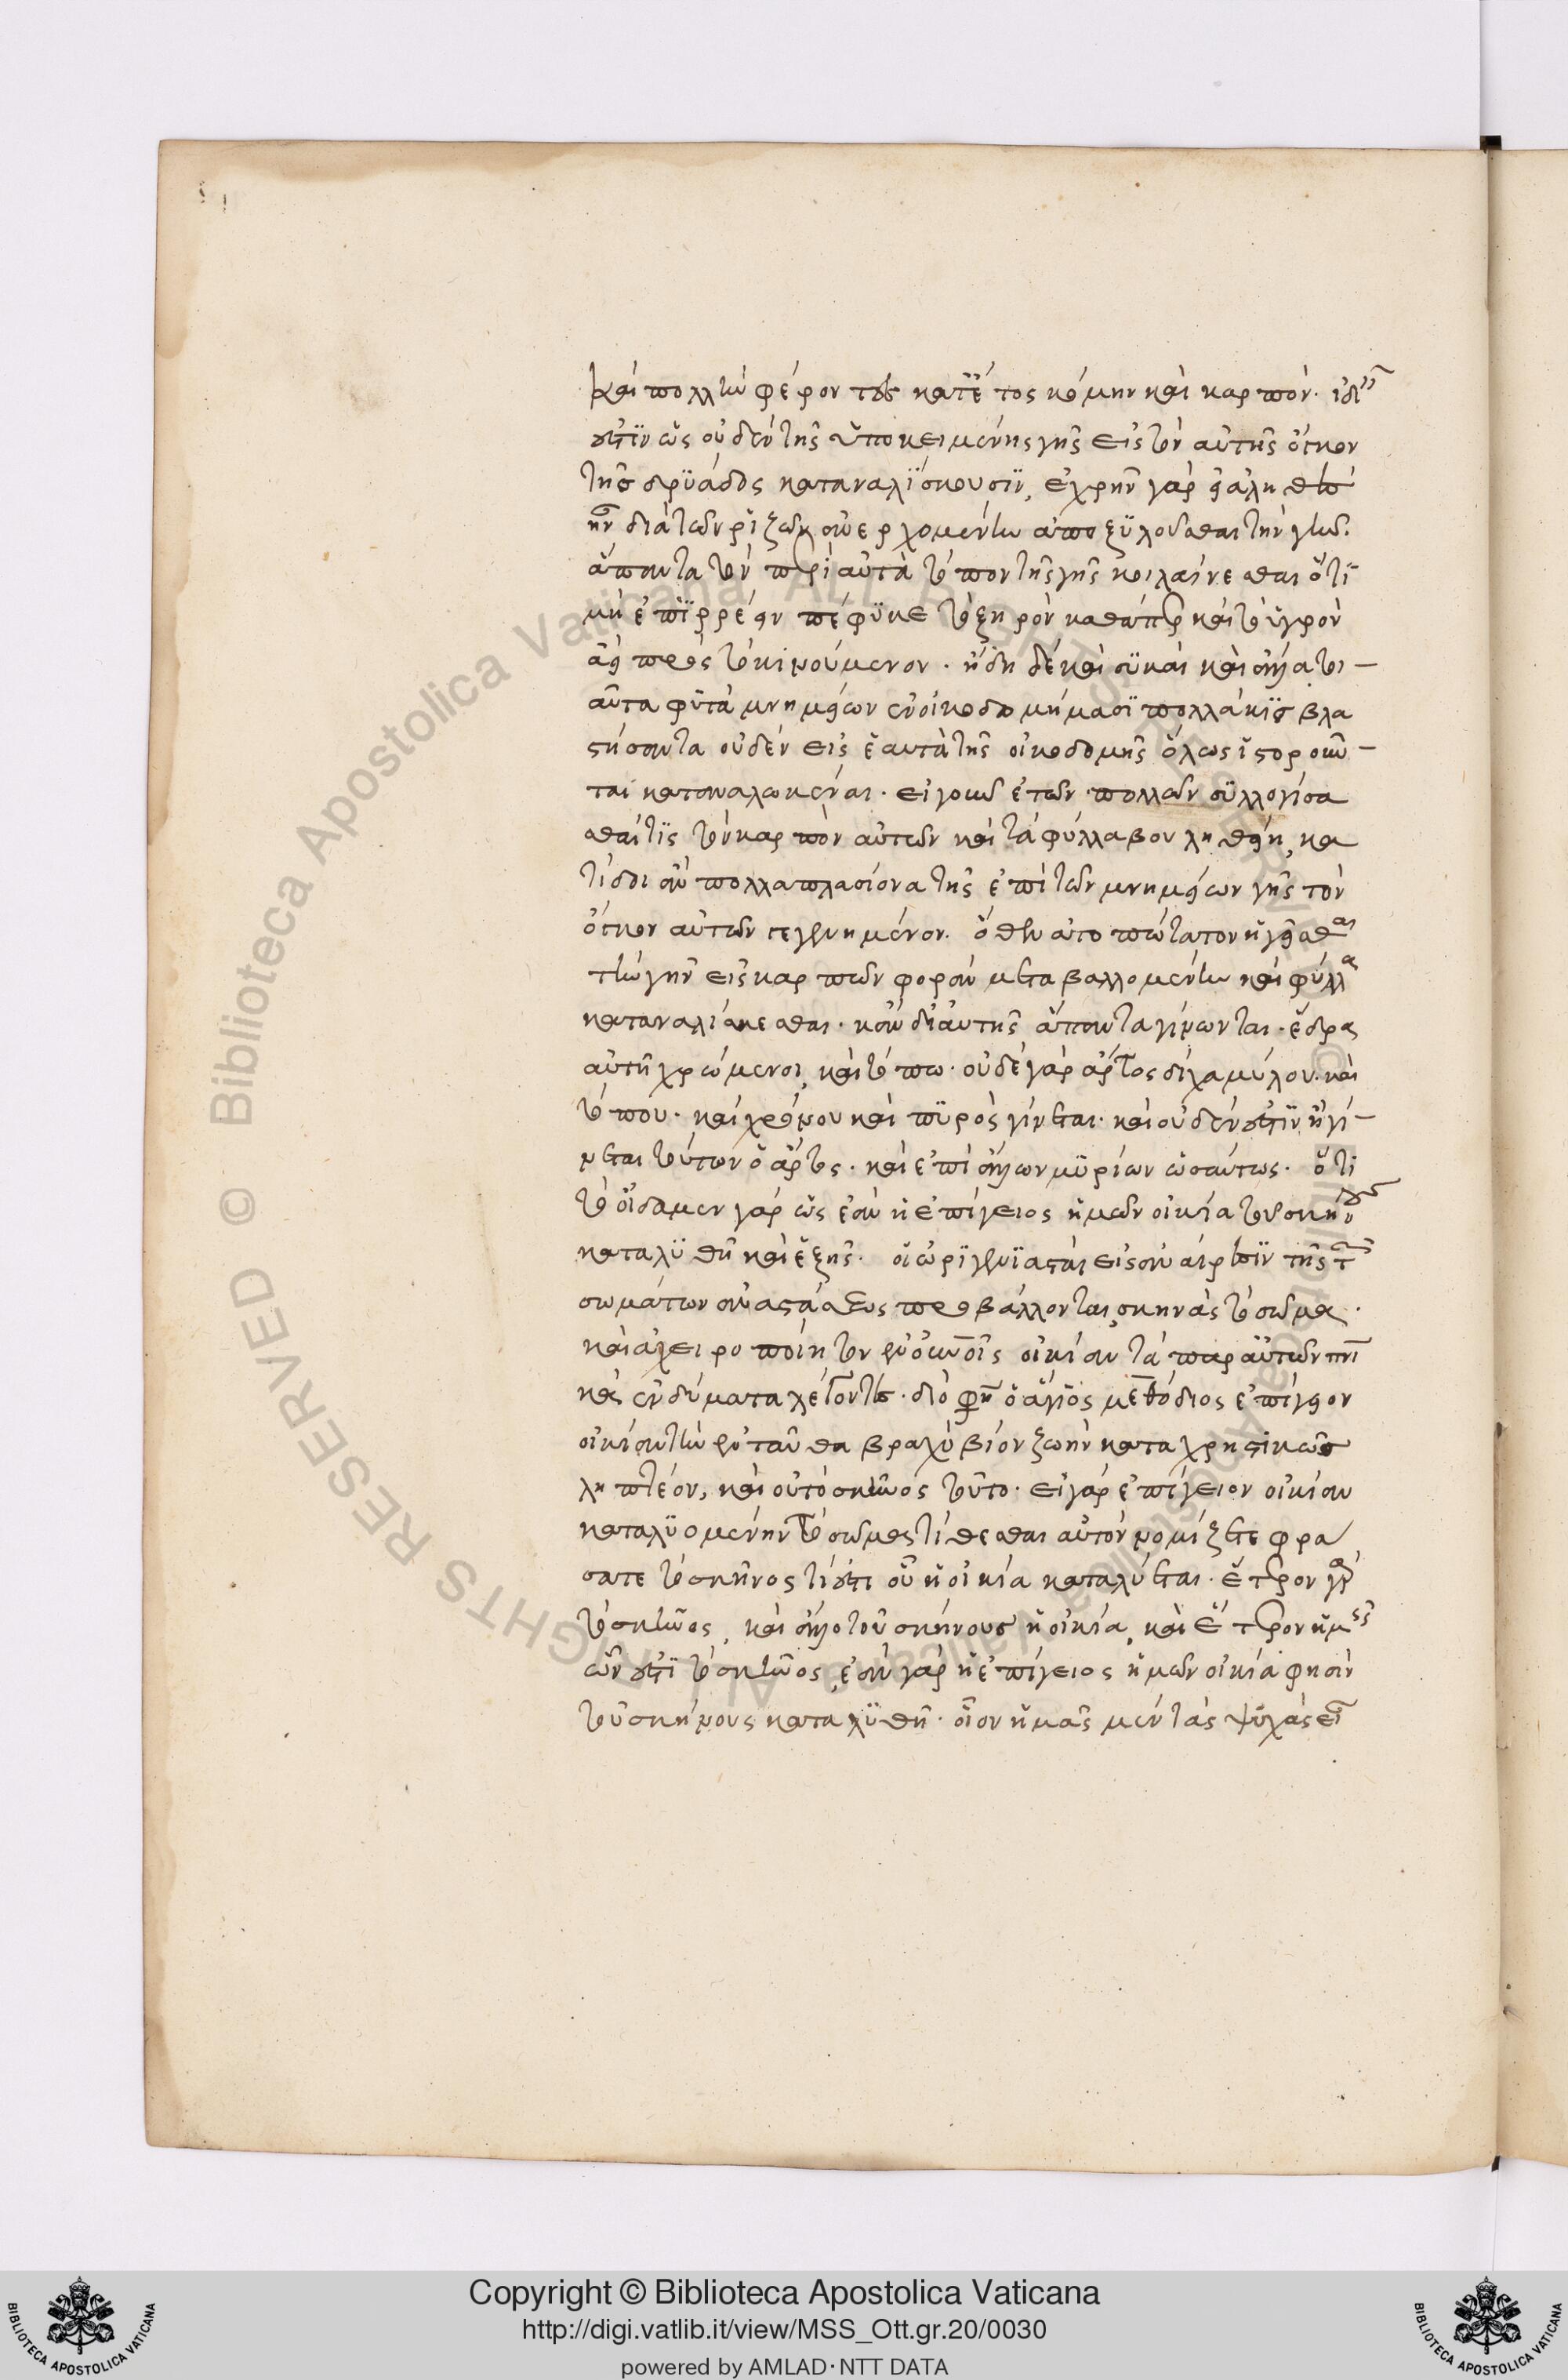 καὶ πολλὴν φέροντες κατ' ἔτος κόμην καὶ καρπόν. ἰδεῖν
ἐστὶν ὡς οὐδὲν τῆς ὑποκειμένης γῆς εἰς τὸν αὐτῆς ὄγκον
τῆς δρυάδος καταναλίσκουσιν, ἐχρῆν γὰρ εἰ ἀληθὲς
ἦν διὰ τῶν ῥιζῶν συνερχομένην ἀποξυλοῦσθαι τὴν γῆν.
ἅπαντα τὸν περὶ αὐτὰ τόπον τῆς γῆς κοιλαίνεσθαι ὅτι
μὴ ἐπιρρέειν πέφυκε τὸ ξηρὸν καθάπερ καὶ τὸ ὑγρὸν
ἀεὶ πρὸς τὸ κινούμενον. ἤδη δὲ καὶ συκαῖ καὶ ἄλλα τοι-
αῦτα φυτὰ μνημείων ἐν οἰκοδομήμασι πολλάκις βλα
στήσαντα οὐδὲν εἰς ἑαυτὰ τῆς οἰκοδομῆς ὅλως ἱστοροῦν-
ται καταναλωκέναι. εἰ γοῦν ἐτῶν πολλῶν συλλογίσα
σθαί τις τὸν καρπὸν αὐτῶν καὶ τὰ φύλλα βουληθείη, κα
τίδοι ἂν πολλαπλασίονα τῆς ἐπὶ τῶν μνημείων γῆς τὸν
ὄγκον αὐτῶν γεγενημένον. ὅθεν ἀτοπώτατον ἡγεῖσθαι
τὴν γῆν εἰς καρπῶν φορὰν μεταβαλλομένην καὶ φύλλα
καταναλίσκεσθαι. κἂν δι' αὐτῆς ἅπαντα γίνωνται. ἕδρᾳ
αὐτῇ χρώμενοι, καὶ τόπω. οὐδὲ γὰρ ἄρτος δίχα μύλου. καὶ
τόπου. καὶ χρόνου καὶ πυρὸς γίνεται. καὶ οὐδέν ἐστιν ἢ γί-
νεται τούτων ὁ ἄρτος. καὶ ἐπὶ ἄλλων μυρίων ὡσαύτως. ὅτι
τὸ οἴδαμεν γὰρ ὡς ἐὰν ἡ ἐπίγειος ἡμῶν οἰκία τοῦ σκήνους
καταλυθῆ καὶ ἑξῆς. οἱ ὠριγενιασταὶ εἰς ἀναίρεσιν τῆς τῶν
σωμάτων ἀναστάσεως προβάλλονται, σκηνὰς τὸ σῶμα.
καὶ ἀχειροποίητον ἐν οὐνοῖς οἰκίαν τὰ παρ' αὐτῶν πνι
κὰ ἐνδύματα λέγοντες. διό φησιν ὁ ἅγιος μεθόδιος ἐπίγειον
οἰκίαν τὴν ἐνταῦθα βραχύβιον ζωὴν καταχρηστικῶς
ληπτέον, καὶ οὐ τὸ σκῆνος τοῦτο. εἰ γὰρ ἐπίγειον οἰκίαν
καταλυομένην τὸ σῶμα τίθεσθαι αὐτὸν νομίζετε φρά
σατε τὸ σκῆνος τί ἐστι οὗ ἡ οἰκία καταλύεται. ἕτερον γὰρ
τὸ σκῆνος, καὶ ἄλλο τοῦ σκήνους ἡ οἰκία, καὶ ἕτερον ἡμεῖς
ὧν ἐστὶ τὸ σκῆνος, ἐὰν γὰρ ἡ ἐπίγειος ἡμῶν οἰκία φησὶν
τοῦ σκήνους καταλυθῆ. οἷον ἡμᾶς μὲν τὰς ψυχὰς εἶ
Copyright © Biblioteca Apostolica Vaticana
http://digi.vatlib.it/view/MSS_Ott.gr.20/0030
powered by AMLAD·NTT DATA
BIBLIOTECA APOSTOLICA VATICANA
BIBLIOTECA APOSTOLICA VATICANA
© Biblioteca Apostolica Vaticana ALL RIGHTS RESERVED